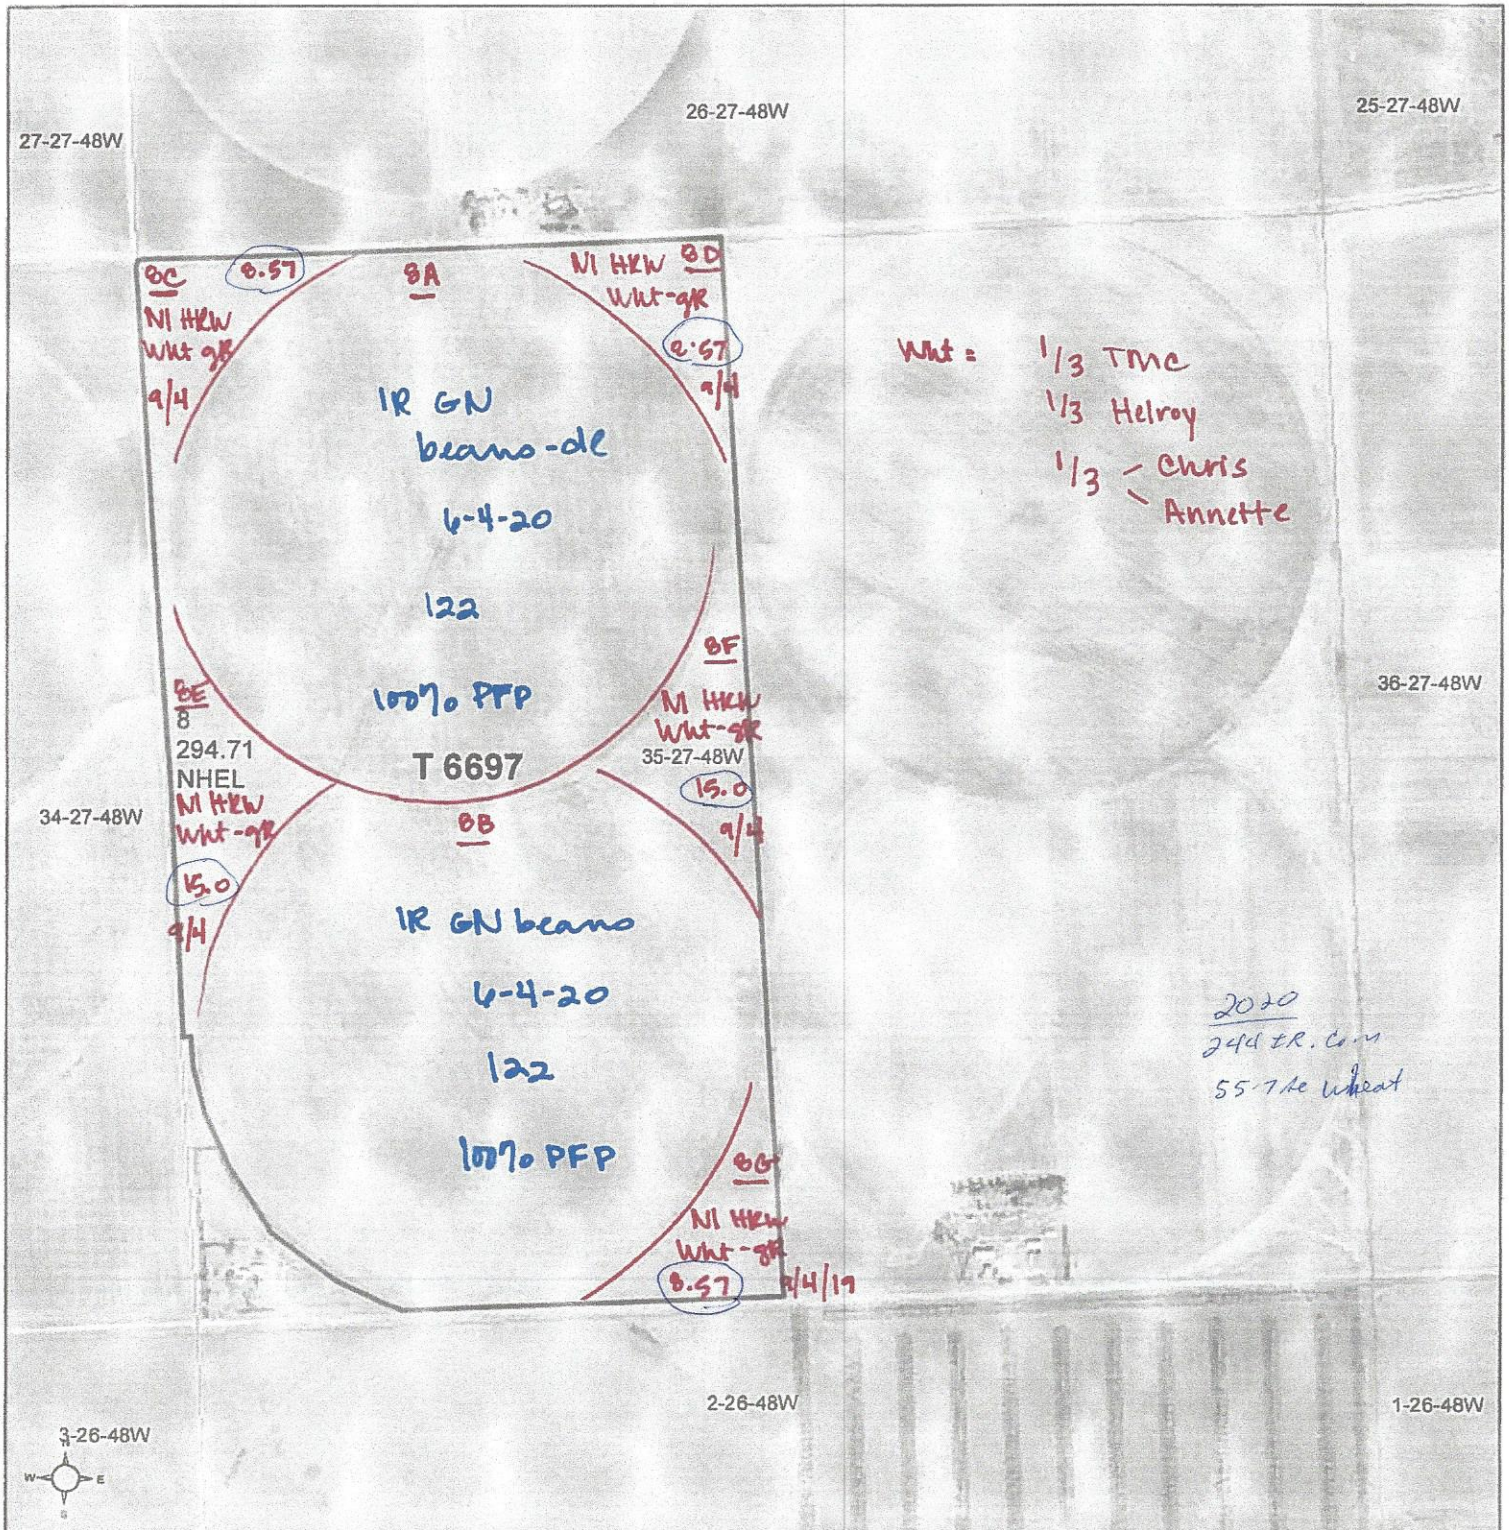 27-27-48W
26-27-48W
25-27-48W
8C
8.57
8A
NI HRW 8D
Wht-gR
NI HRW
Wht gR
9/4
2.57
9/4
IR GN
beans-de
6-4-20
122
100% PFP
Wht = 1/3 TMC
1/3 Helroy
1/3 Chris
Annette
8F
NI HRW
Wht-gR
35-27-48W
15.0
9/4
36-27-48W
8E
8
294.71
NHEL
NI HRW
Wht-gR
T 6697
34-27-48W
15.0
9/4
8B
IR GN beans
6-4-20
122
100% PFP
2020
244 IR. Corn
55.7 Ac Wheat
8G
NI HRW
Wht-gR
8.57 9/4/19
2-26-48W
1-26-48W
3-26-48W
N
W E
S